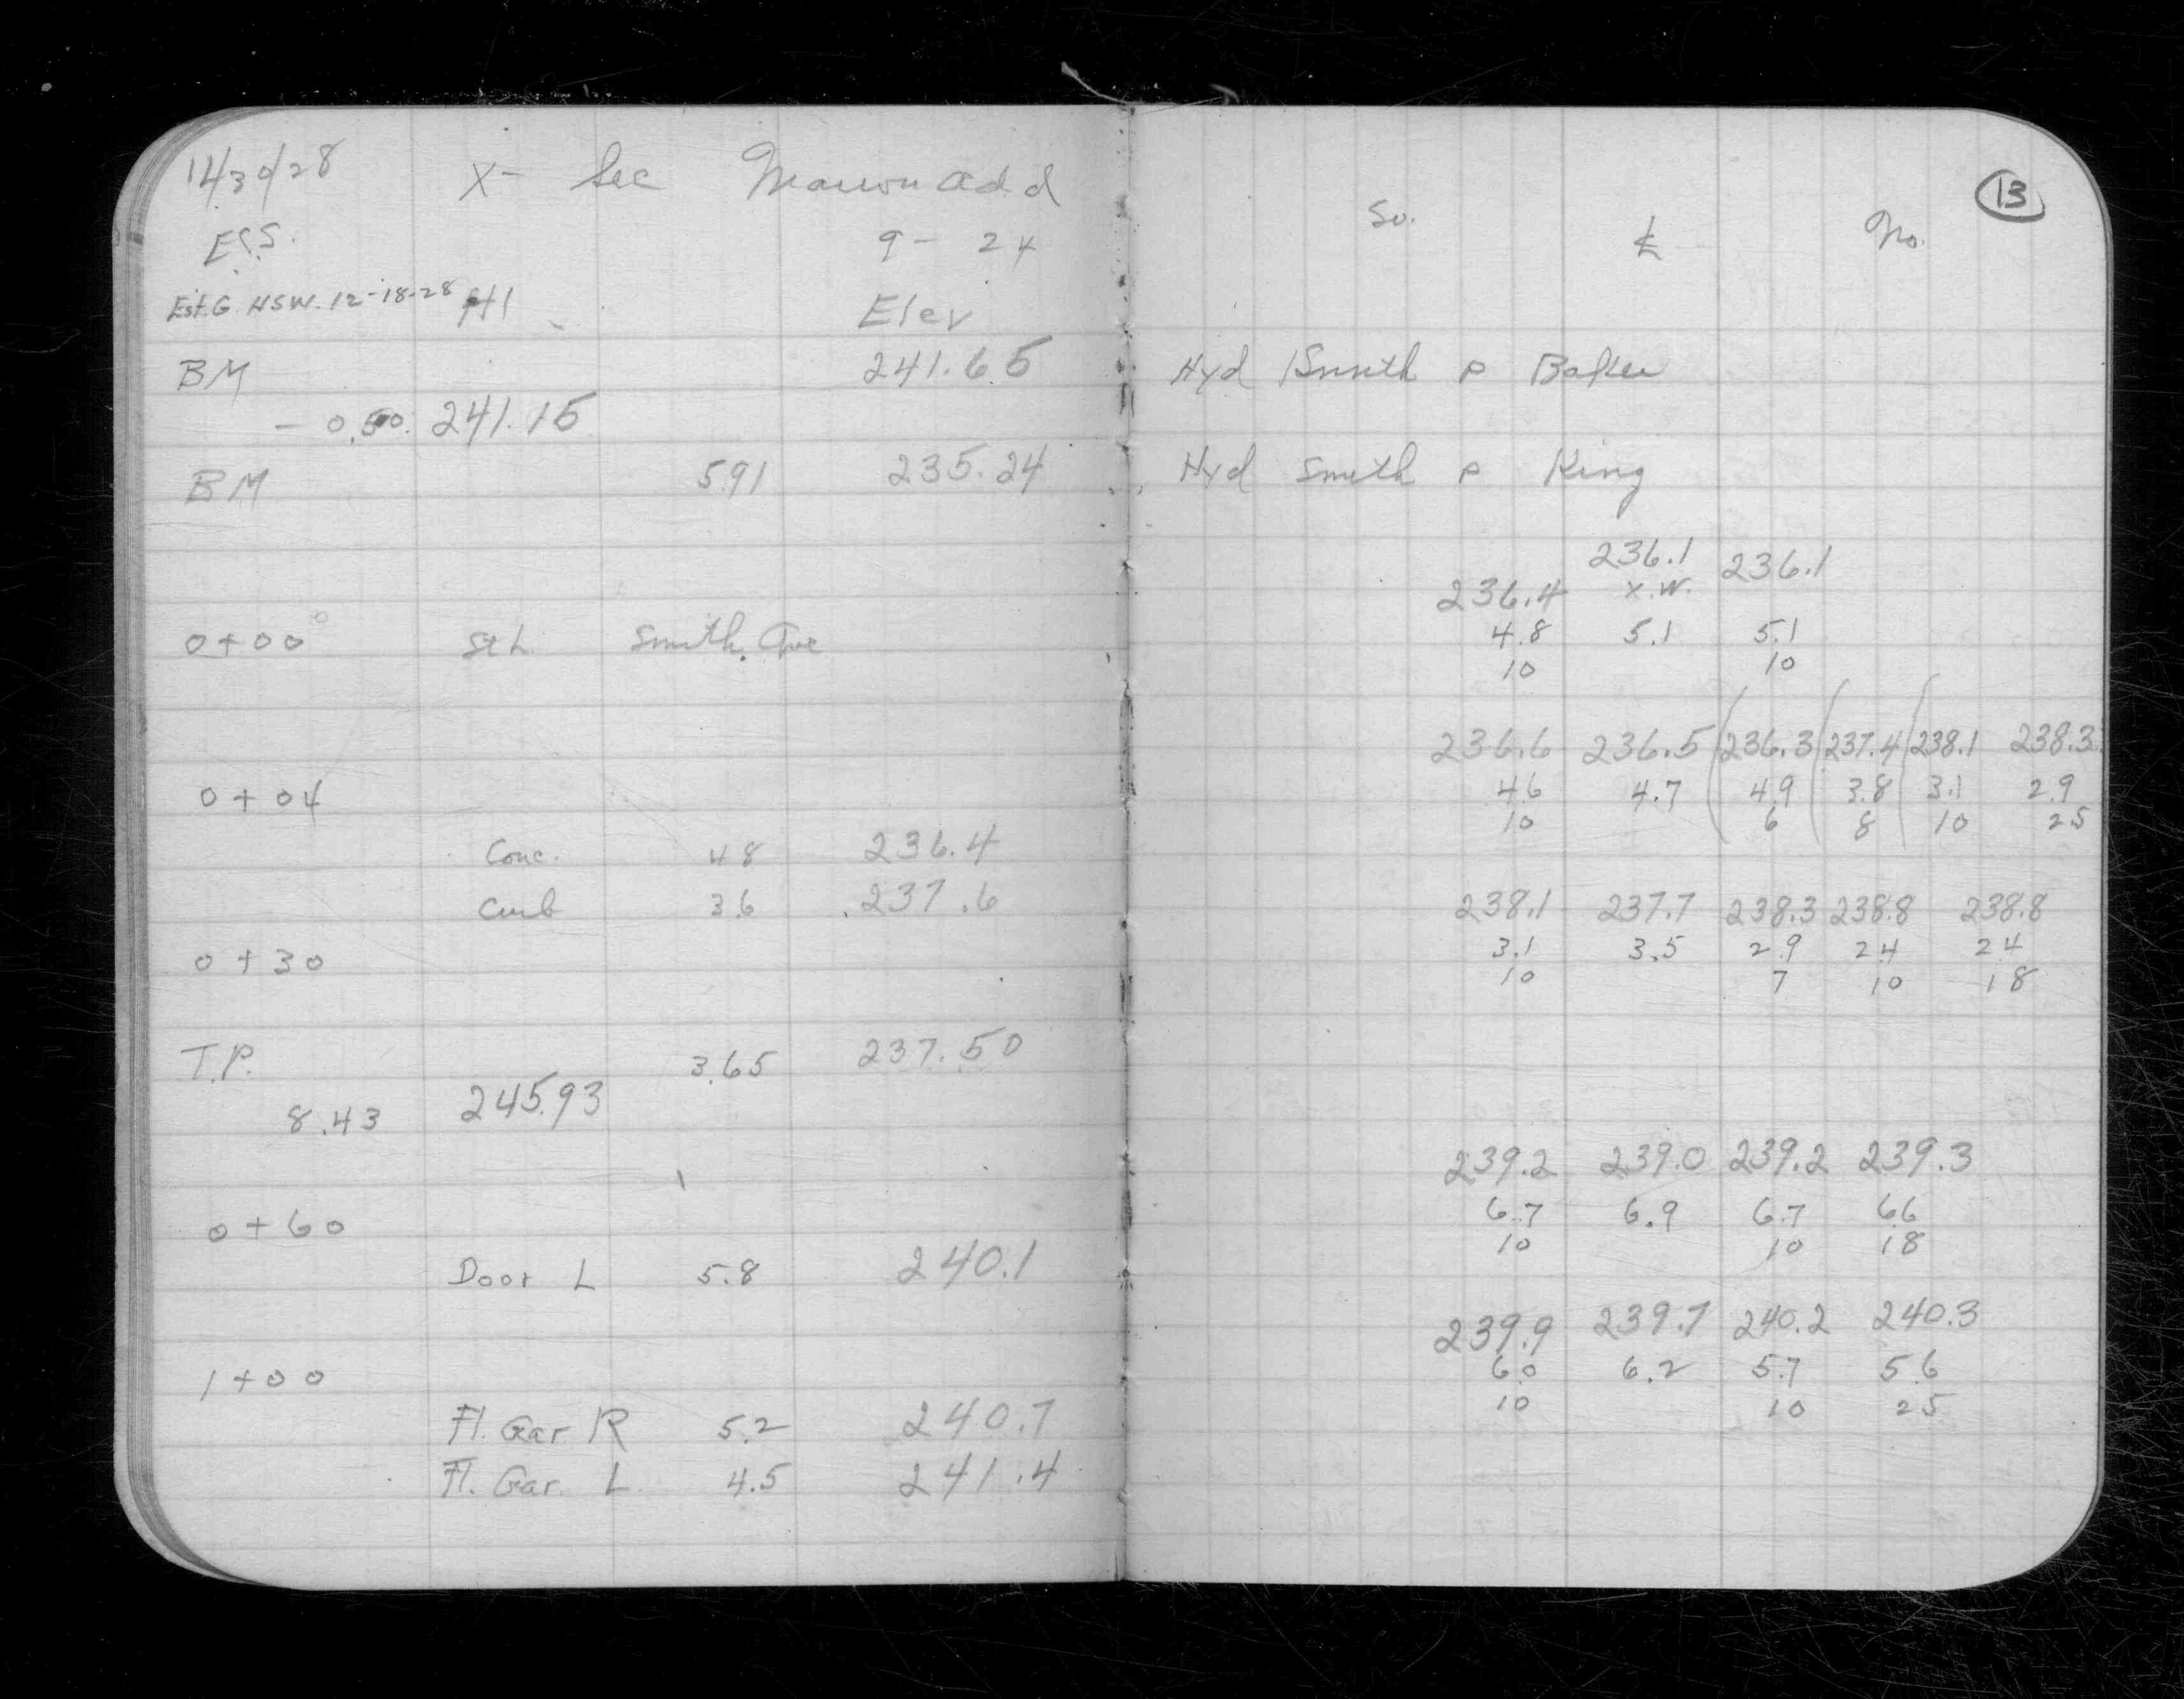 11/30/28 X- Sec Marion Add
E.S. 9 - 24
Est. G. H.S.W. 12-18-28 HI Elev
BM 241.65
- 0.50. 241.15
BM 5.91 235.24
0+00 St L Smith Ave
0+04
Conc. 4.8 236.4
Curb 3.6 237.6
0+30
T.P. 3.65 237.50
8.43 245.93
0+60
Door L 5.8 240.1
1+00
Fl. Gar R 5.2 240.7
Fl. Gar. L 4.5 241.4
13
So. ℄ No.
Hyd Smith & Baker
Hyd Smith & King
236.1 236.1
236.4 X.W.
4.8 5.1 5.1
10 10
236.6 236.5 236.3 237.4 238.1 238.3
4.6 4.7 4.9 3.8 3.1 2.9
10 6 8 10 25
238.1 237.7 238.3 238.8 238.8
3.1 3.5 2.9 2.4 2.4
10 7 10 18
239.2 239.0 239.2 239.3
6.7 6.9 6.7 6.6
10 10 18
239.9 239.7 240.2 240.3
6.0 6.2 5.7 5.6
10 10 25